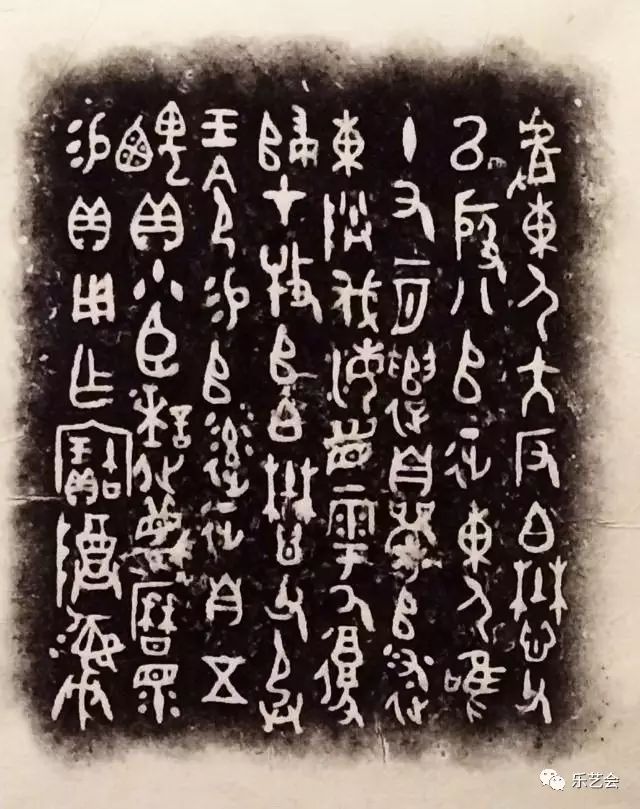 𠭯東尸大反白懋父
㠯殷八𠂤征東尸唯
十又一月遣自𠂤述
東伐海眉雩氒復
歸才牧𠂤白懋父承
王令易𠂤達征自五
齵貝小臣謎蔑曆眔
易貝用乍寶尊彝
乐艺会